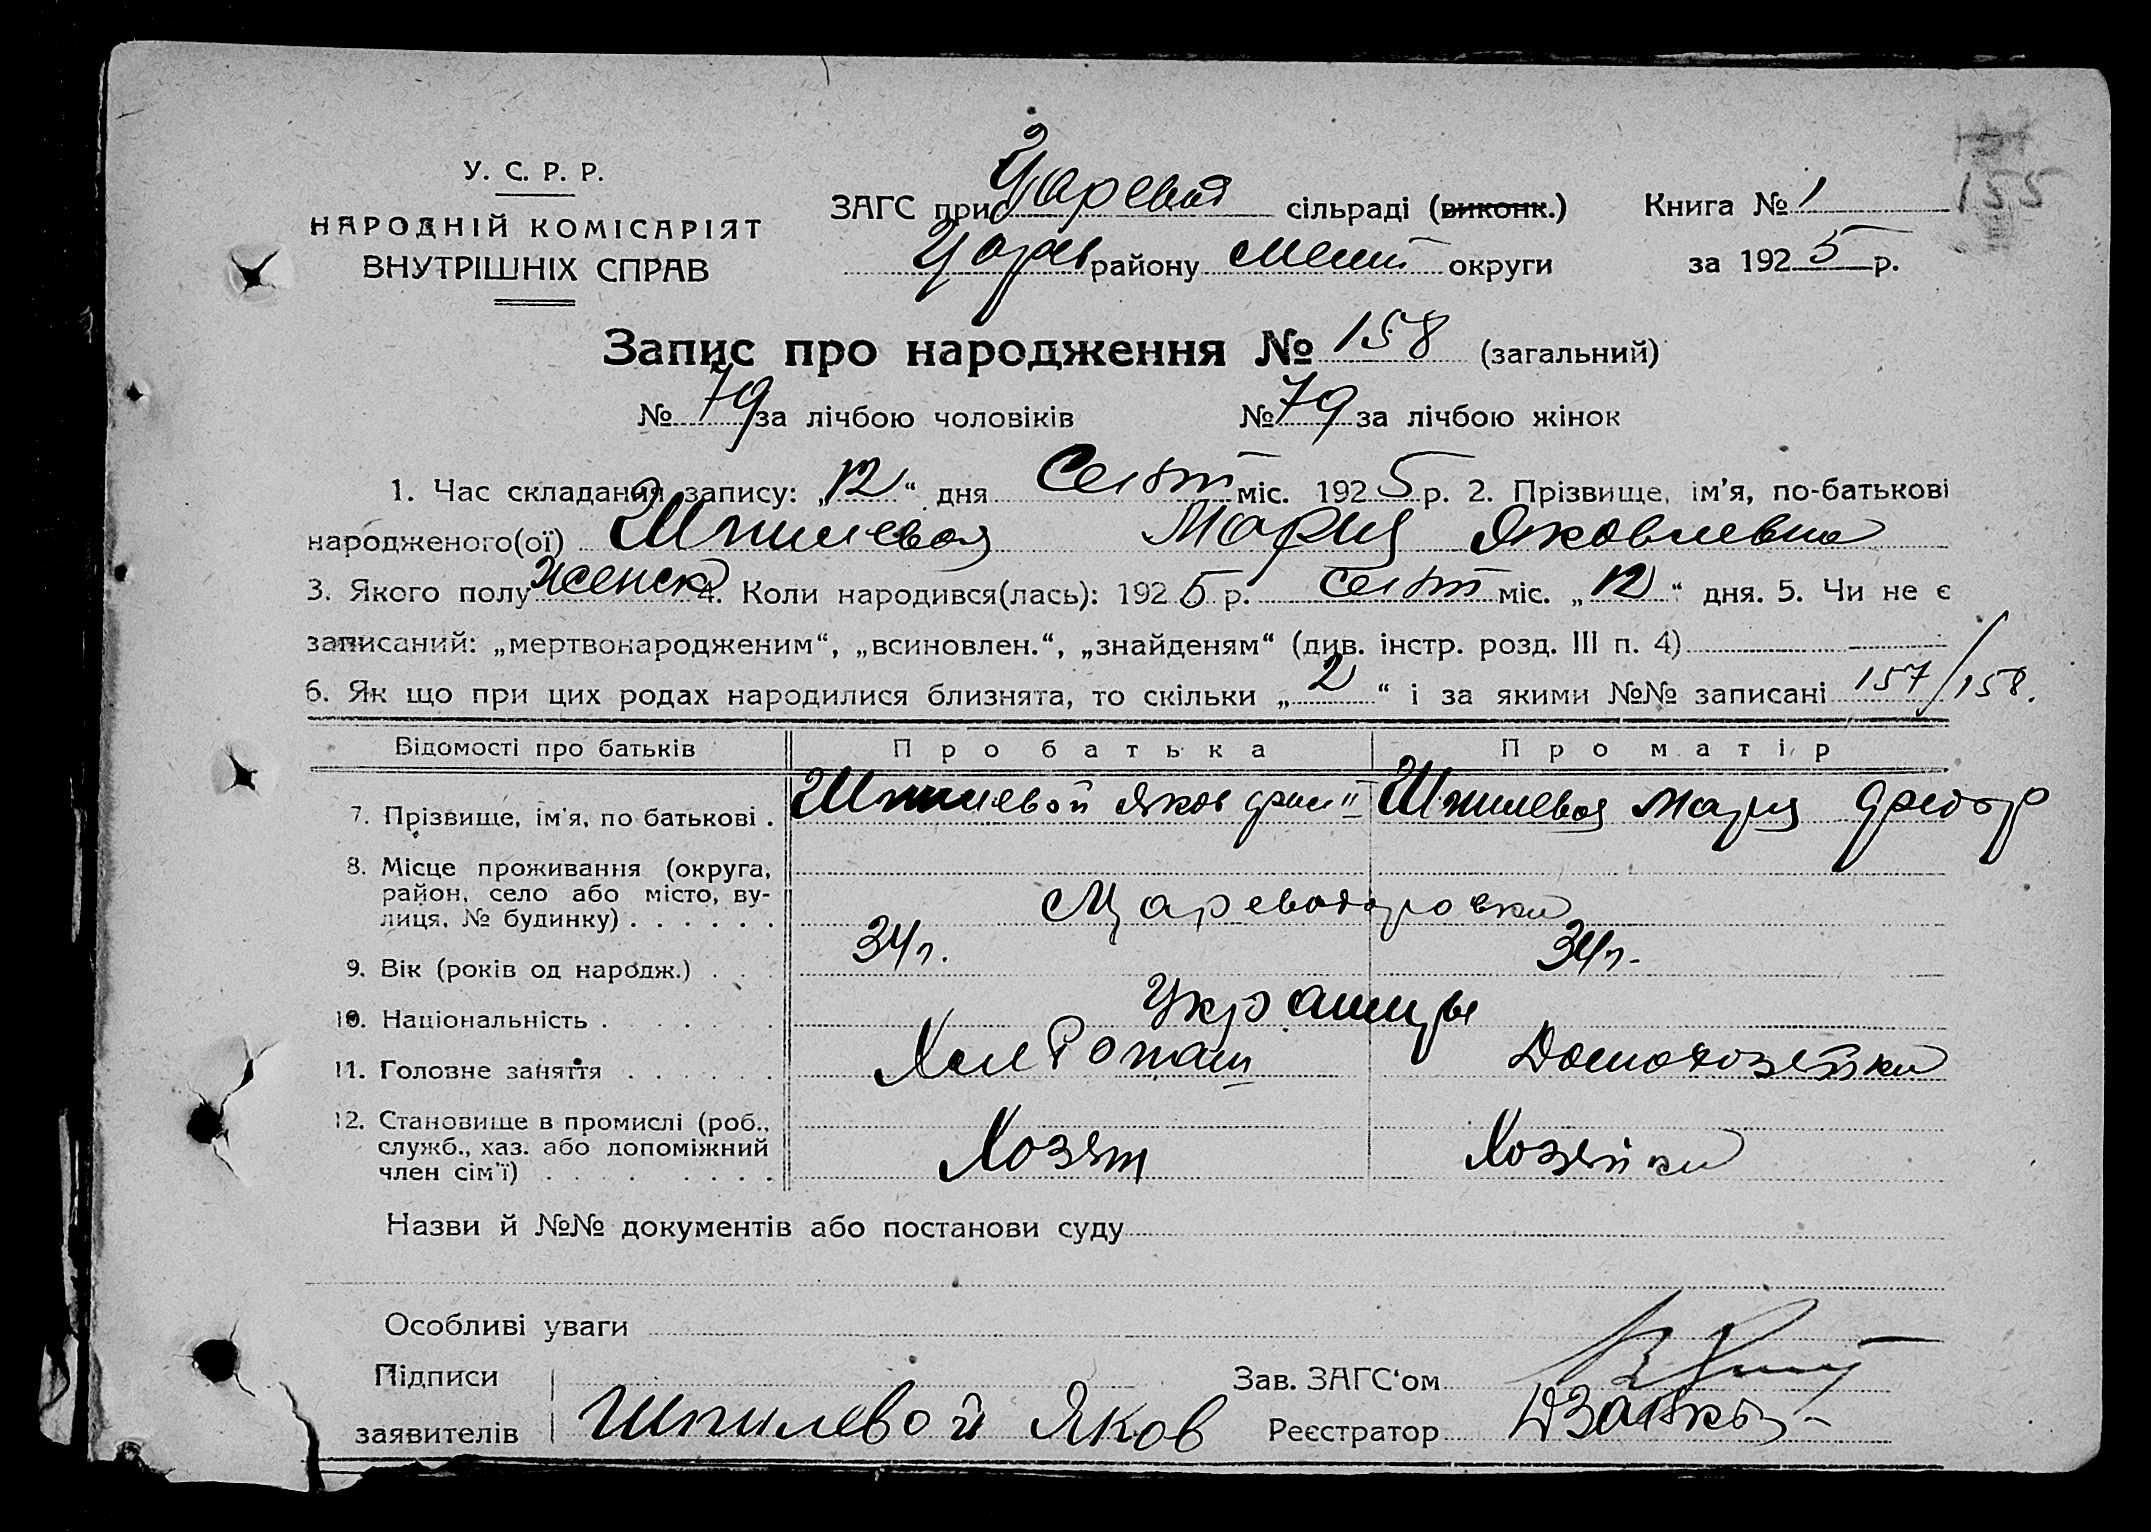 У. С. Р. Р.
НАРОДНІЙ КОМІСАРІЯТ
ВНУТРІШНІХ СПРАВ
ЗАГС при Царевод сільраді (виконк.)
Царев району Меліт округи
Книга № 1
за 1925 р.
122
Запис про народження № 158 (загальний)
№ 79 за лічбою чоловіків № 79 за лічбою жінок
1. Час складання запису: „12“ дня Сент міс. 1925 р. 2. Прізвище, ім'я, по-батькові
народженого(ої) Шпилевая Мария Яковлевна
3. Якого полу женск 4. Коли народився(лась): 1925 р. Сент міс. „12“ дня. 5. Чи не є
записаний: „мертвонародженим“, „всиновлен.“, „знайденям“ (див. інстр. розд. III п. 4)
6. Як що при цих родах народилися близнята, то скільки „2“ і за якими №№ записані 157/158.
Відомості про батьків Про батька Про матір
7. Прізвище, ім'я, по батькові . Шпилевой Яков Шпилевая Мария Федор
8. Місце проживання (округа,
район, село або місто, ву-
лиця, № будинку) . . . . . .
9. Вік (років од народж.) . . . 34 л. 34 л.
10. Національність . . . . Украинцы
11. Головне заняття . . . . . Хлебопаш Домохозяйка
12. Становище в промислі (роб.,
служб., хаз. або допоміжний
член сім'ї) . . . . . . . Хозяин Хозяйка
Назви й №№ документів або постанови суду
Особливі уваги
Підписи
заявителів Шпилевой Яков
Зав. ЗАГС'ом
Реєстратор